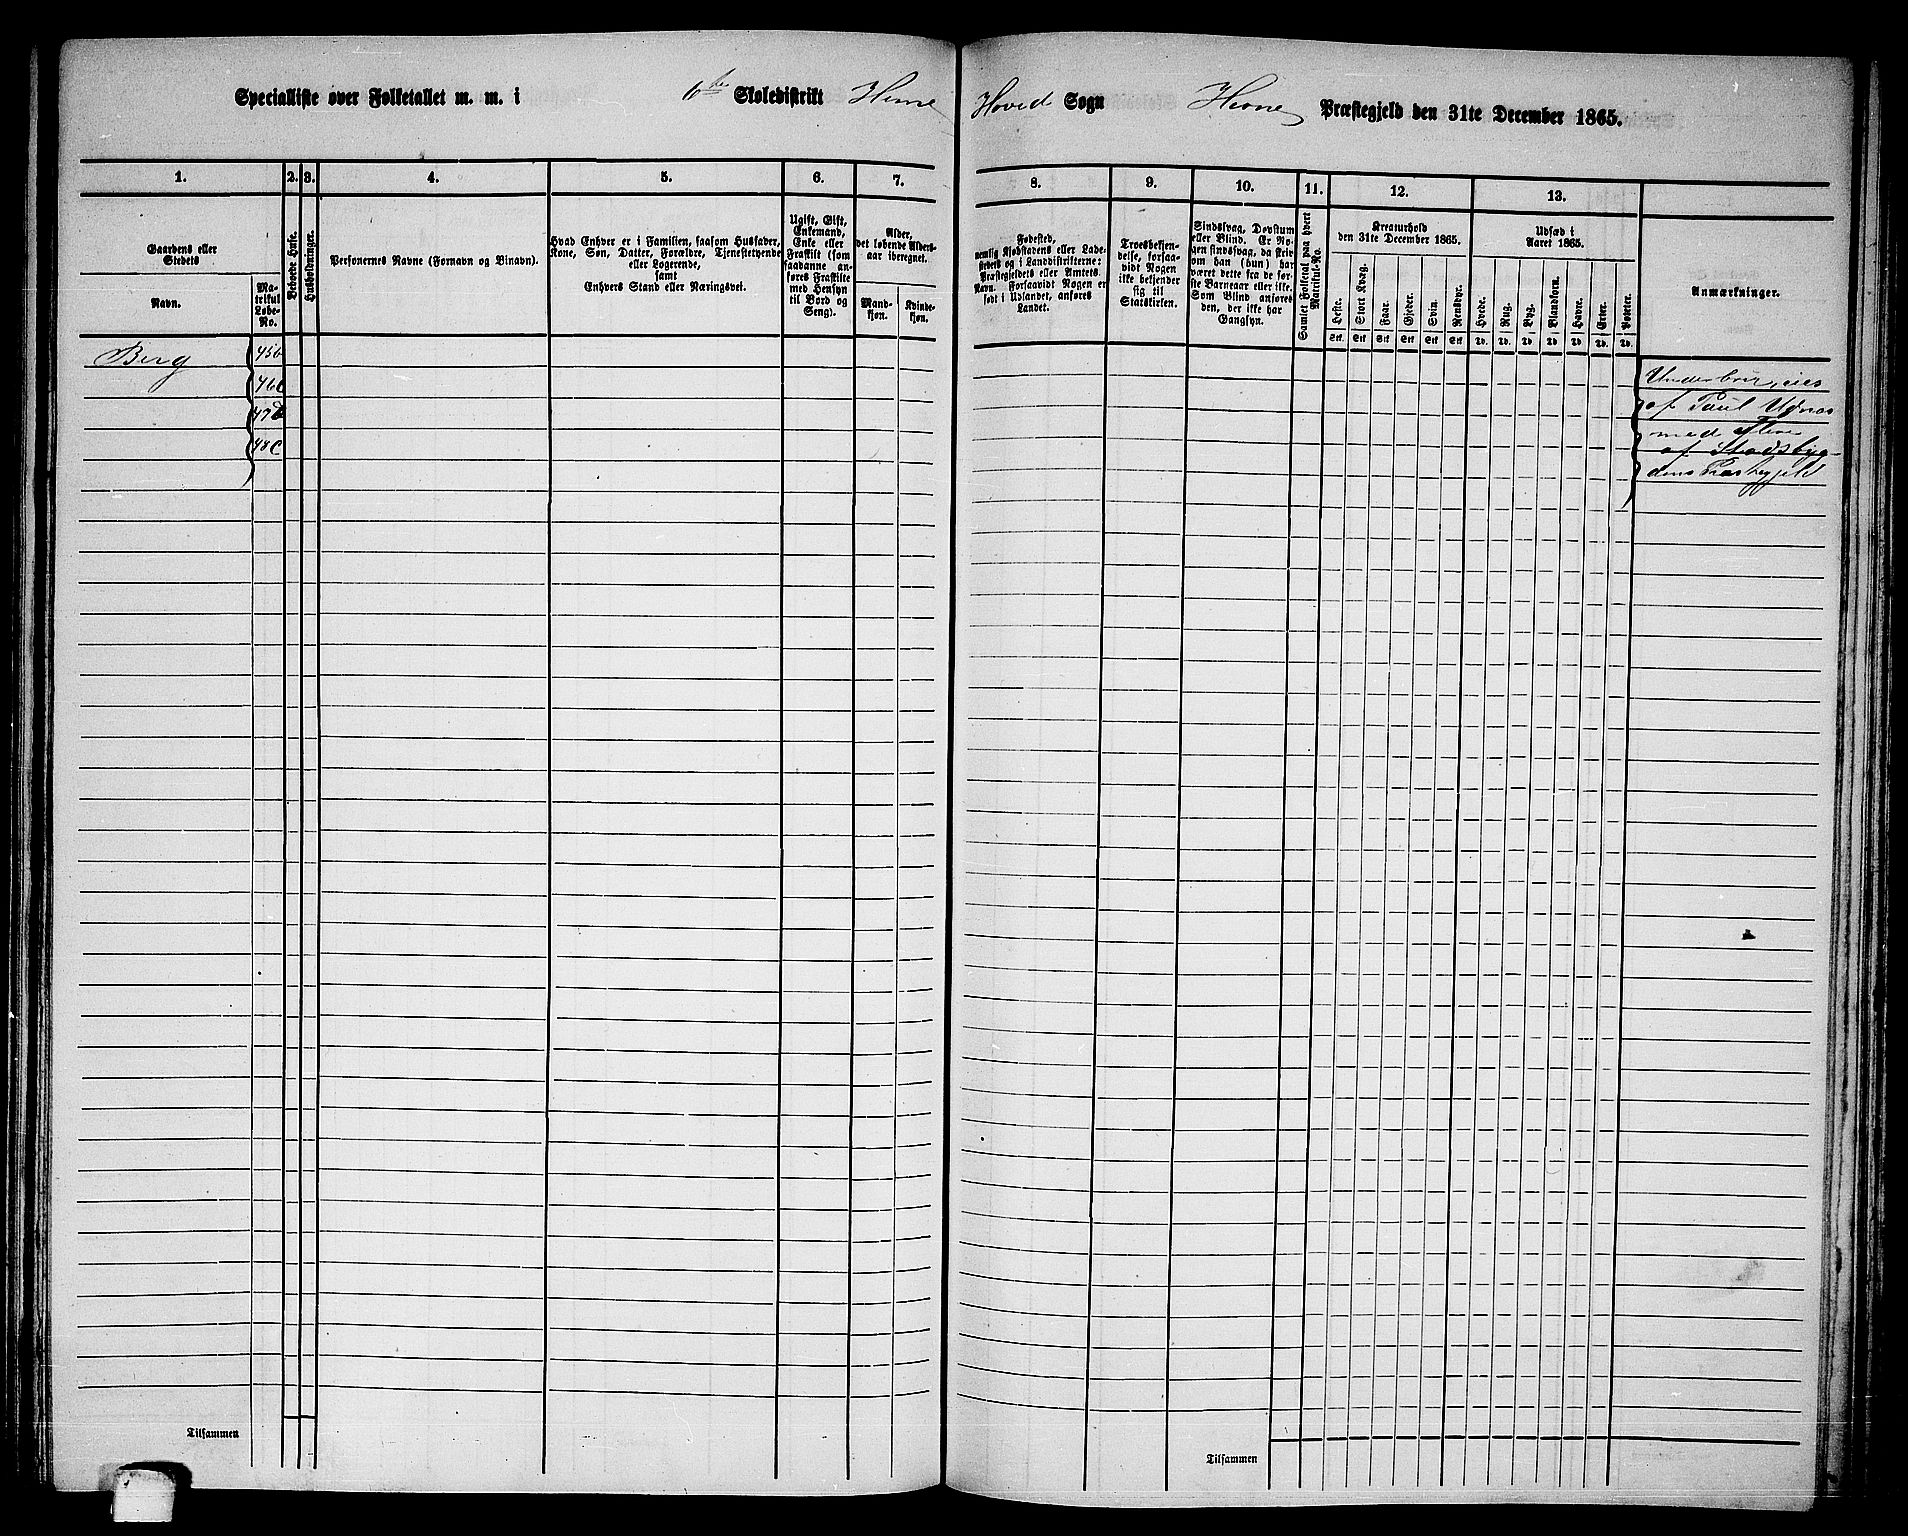 Specialliste over Folketallet m. m. i 6te Skoledistrikt Hevne Hoved Sogn Hevne Præstegjeld den 31te December 1865.
1. 2. 3. 4. 5. 6. 7. 8. 9. 10. 11. 12. 13.
Gaardens eller
Stedets
Navn.
Ma-
trikul
Løbe-
No.
Beboede Huse.
Husholdninger.
Personernes Navne (Fornavn og Binavn).
Hvad Enhver er i Familien, saasom Husfader,
Kone, Søn, Datter, Forældre, Tjenestetyende
eller Logerende,
samt
Enhvers Stand eller Næringsvei.
Ugift, Gift,
Enkemand,
Enke eller
Fraskilt (som
saadanne an-
føres Fraskilte
med Hensyn
til Bord og
Seng).
Alder,
det løbende Alders-
aar iberegnet.
Mand-
kjøn.
Kvinde-
kjøn.
Fødested,
nemlig Kjøbstadens eller Lade-
stedets og i Landdistrikterne:
Præstegjeldets eller Amtets
Navn. Forsaavidt Nogen er
født i Udlandet, anføres
Landet.
Troesbekjen-
delse, forsaa-
vidt Nogen
ikke bekjender
sig til
Statskirken.
Sindssvag, Døvstum
eller Blind. Er No-
gen sindssvag, da skriv
om han (hun) har
været dette fra de før-
ste Barneaar eller ikke.
Som Blind anføres
den, der ikke har
Gangsyn.
Samlet Folketal paa hvert
Matrikul-No.
Kreaturhold
den 31te December 1865.
Heste. Stort Kvæg. Faar. Gjeder. Svin. Rensdyr.
Stk. Stk. Stk. Stk. Stk. Stk.
Udsæd i
Aaret 1865.
Hvede. Rug. Byg. Blandkorn. Havre. Erter. Poteter.
Td. Td. Td. Td. Td. Td. Td.
Anmærkninger.
Berg 45b
46c
47d
48c
Underbrug, eies
af Paul Udnæs
med flere
af Stadsbyg-
dens Præstegjeld
Tilsammen
Tilsammen